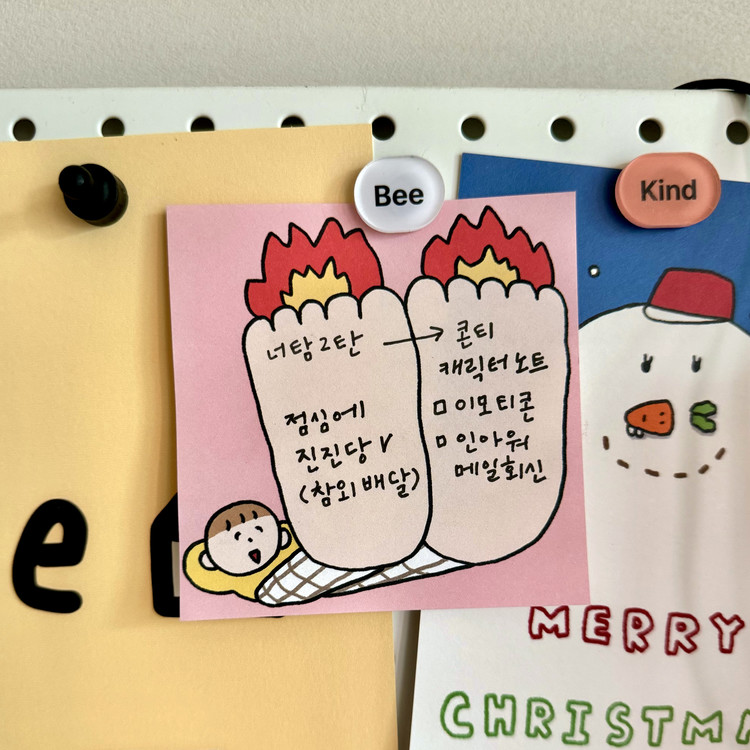 Bee
Kind
너탐2탄 → 콘티
캐릭터노트
□ 이모티콘
□ 인아워
메일회신
점심에
진진당 V
(참외배달)
e
MERRY
CHRISTMA